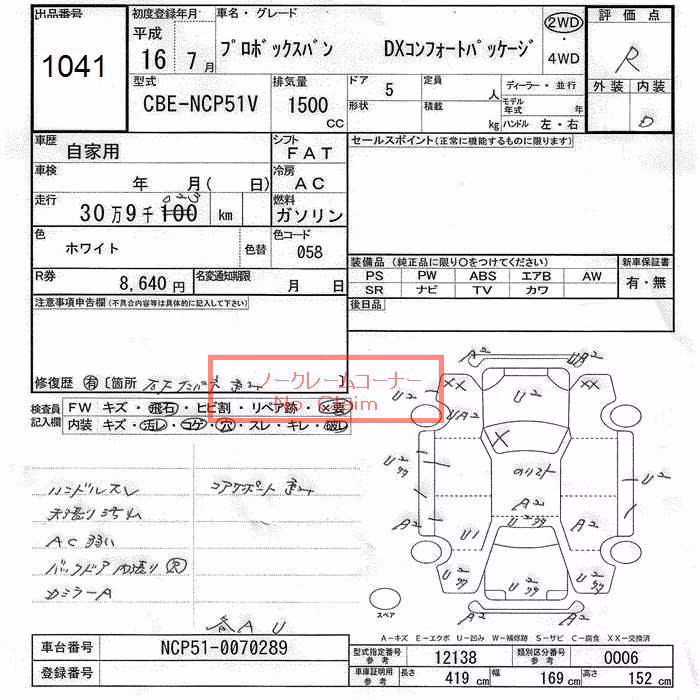 出品番号 初度登録年月 車名・グレード 評価点
1041
平成 16 7月 プロボックスバン DXコンフォートパッケージ 2WD・4WD R
型式 排気量 ドア 定員 ディーラー・並行 外装 内装
CBE-NCP51V 1500 CC 5 人 D
形状 積載 kg モデル年式 年 ハンドル 左・右
車歴 自家用 シフト FAT セールスポイント(正常に機能するものに限ります)
車検 年 月( 日) 冷房 AC
走行 30万9千100 km 燃料 ガソリン
色 ホワイト 色替 色コード 058
装備品 (純正品に限り○をつけてください) 新車保証書
PS PW ABS エアB AW 有・無
SR ナビ TV カワ
R券 8,640円 名変通知期限 月 日 後日品
注意事項申告欄(不具合内容等は具体的に記入して下さい)
修復歴 有 [箇所 ]
ノークレームコーナー
No Claim
検査員記入欄 FW キズ・飛石・ヒビ割・リペア跡・X要
内装 キズ・汚レ・コゲ・穴・スレ・キレ・破レ
ハンドルスレ コアサポートまげ
天張り汚れ
AC弱い
バックドア内張り穴
カミラーA
各AU
A2 UB2
XX XX
U2 UA2 U2
X
A2
U2 U2
A2 A2 U1 A2
U2 U2 U2
A2
スペア
A-キズ E-エクボ U-凹み W-補修跡 S-サビ C-腐食 XX-交換済
車台番号 NCP51-0070289 型式指定番号 参考 12138 類別区分番号 参考 0006
登録番号 車庫証明用 参考 長さ 419 cm 幅 169 cm 高さ 152 cm